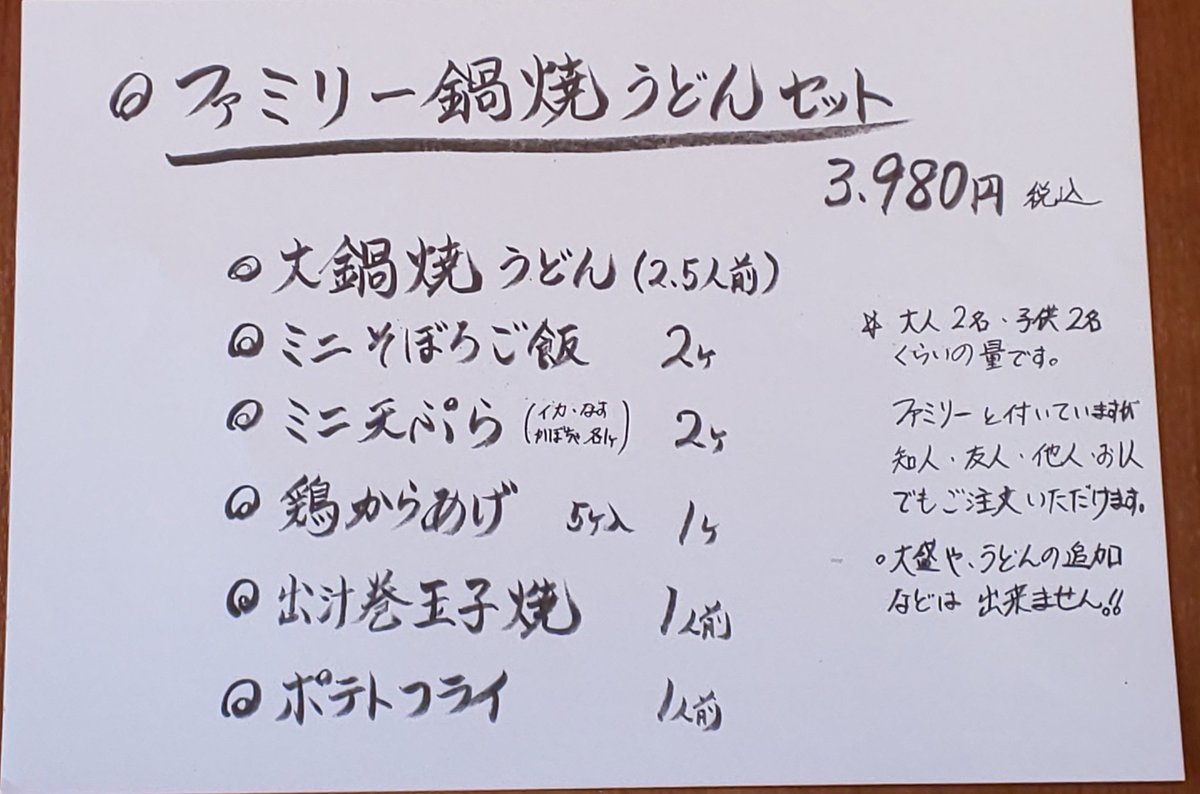 ◎ファミリー鍋焼うどんセット
3.980円 税込
◎大鍋焼うどん(2.5人前)
◎ミニそぼろご飯 2ヶ
◎ミニ天ぷら(イカ・なす
かぼちゃ 各1ヶ) 2ヶ
◎鶏からあげ 5ヶ入 1ヶ
◎出汁巻玉子焼 1人前
◎ポテトフライ 1人前
※大人2名・子供2名
くらいの量です。
ファミリーと付いていますが
知人・友人・他人・お1人
でもご注文いただけます。
○大盛や、うどんの追加
などは出来ません!!